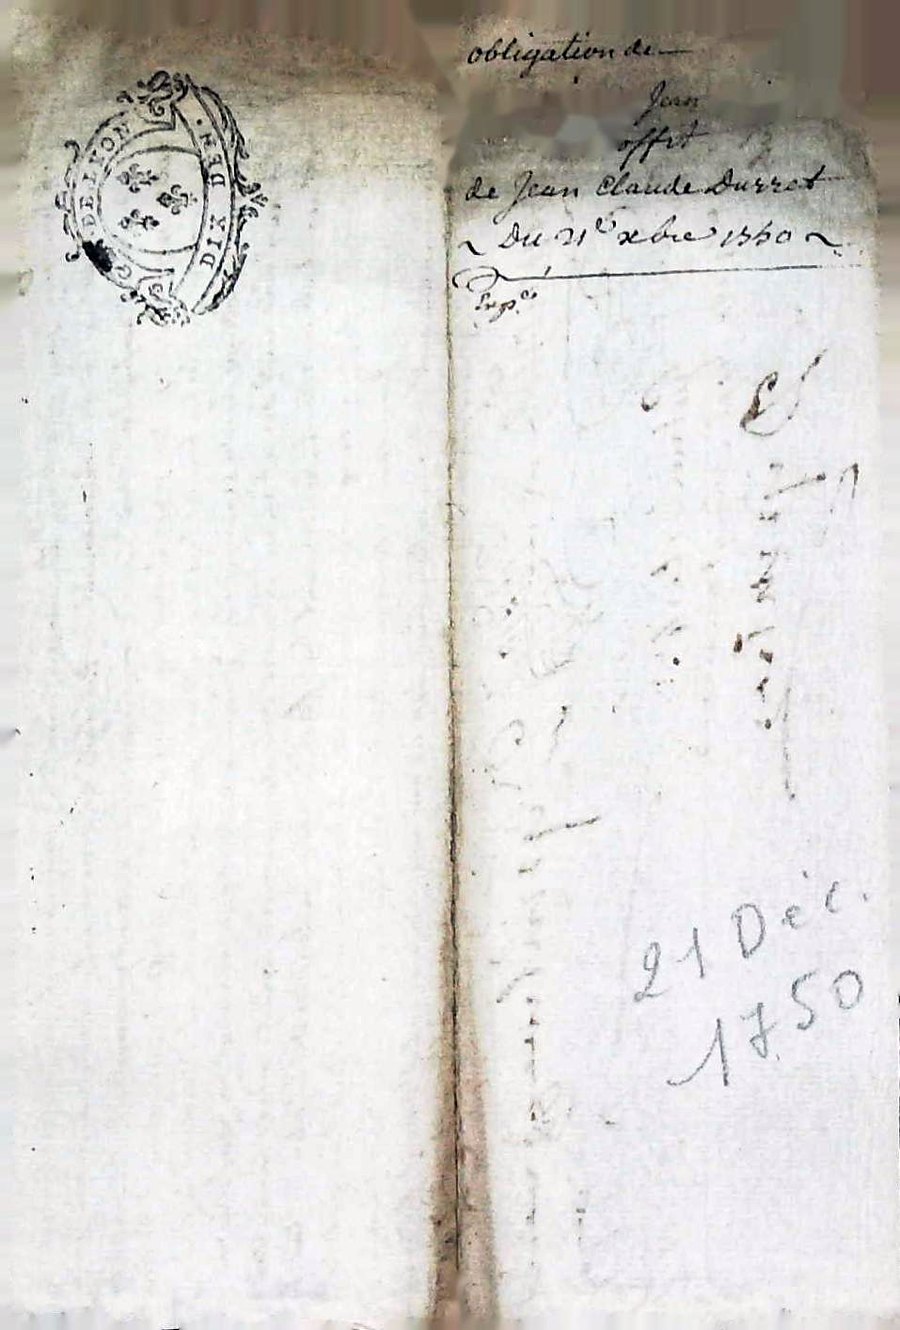 G. DE LYON
DIX DEN.
obligation de
Jean
offrt
de Jean Claude Durret
Du 21e xbre 1750
Exp.ée
21 Déc.
1750